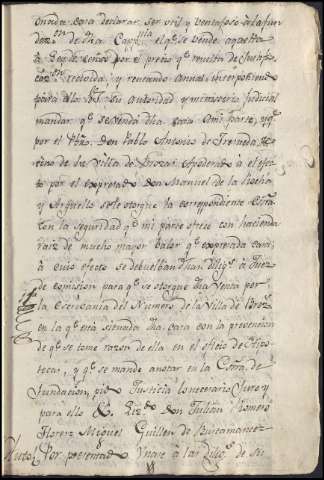 onada para declarar ser util y ventajoso à la fun
daz.on de dha Capp.nia el q.e se vende aquella
por el precio q.e resulta de su
y insertas interponiendo
para ello V. su autoridad y ministerio Judicial
mandar q.e se venda dha casa à mi parte, y q.e
por el Don Pablo Antonio de
vecino de la Villa de Brozas Apoderado à el efec
to por el expresado Don Manuel de la Rocha
y Arguello se le otorgue la correspondiente Escra
con la seguridad q.e mi parte ofrece con hacienda
raiz de mucho mayor valor q.e la expresada casa;
à cuio efecto se debuelban dhas Dilig.s à Juez
de Comision para q.e se otorgue dha venta por
la Escrivania del Numero de la Villa de Broz.s
en la q.e está situada dha casa con la prevencion
de q.e se tome razon de ella en el oficio de Hipo
tecas, y q.e se mande anotar en la Escra de
fundacion, pido Justicia lo necesario Juro y
para ello &. Liz.do Don Julian Romero
Florez Miguel Guillen de Bustamante
Auto Por presentado Unase à las Dilig.s de su